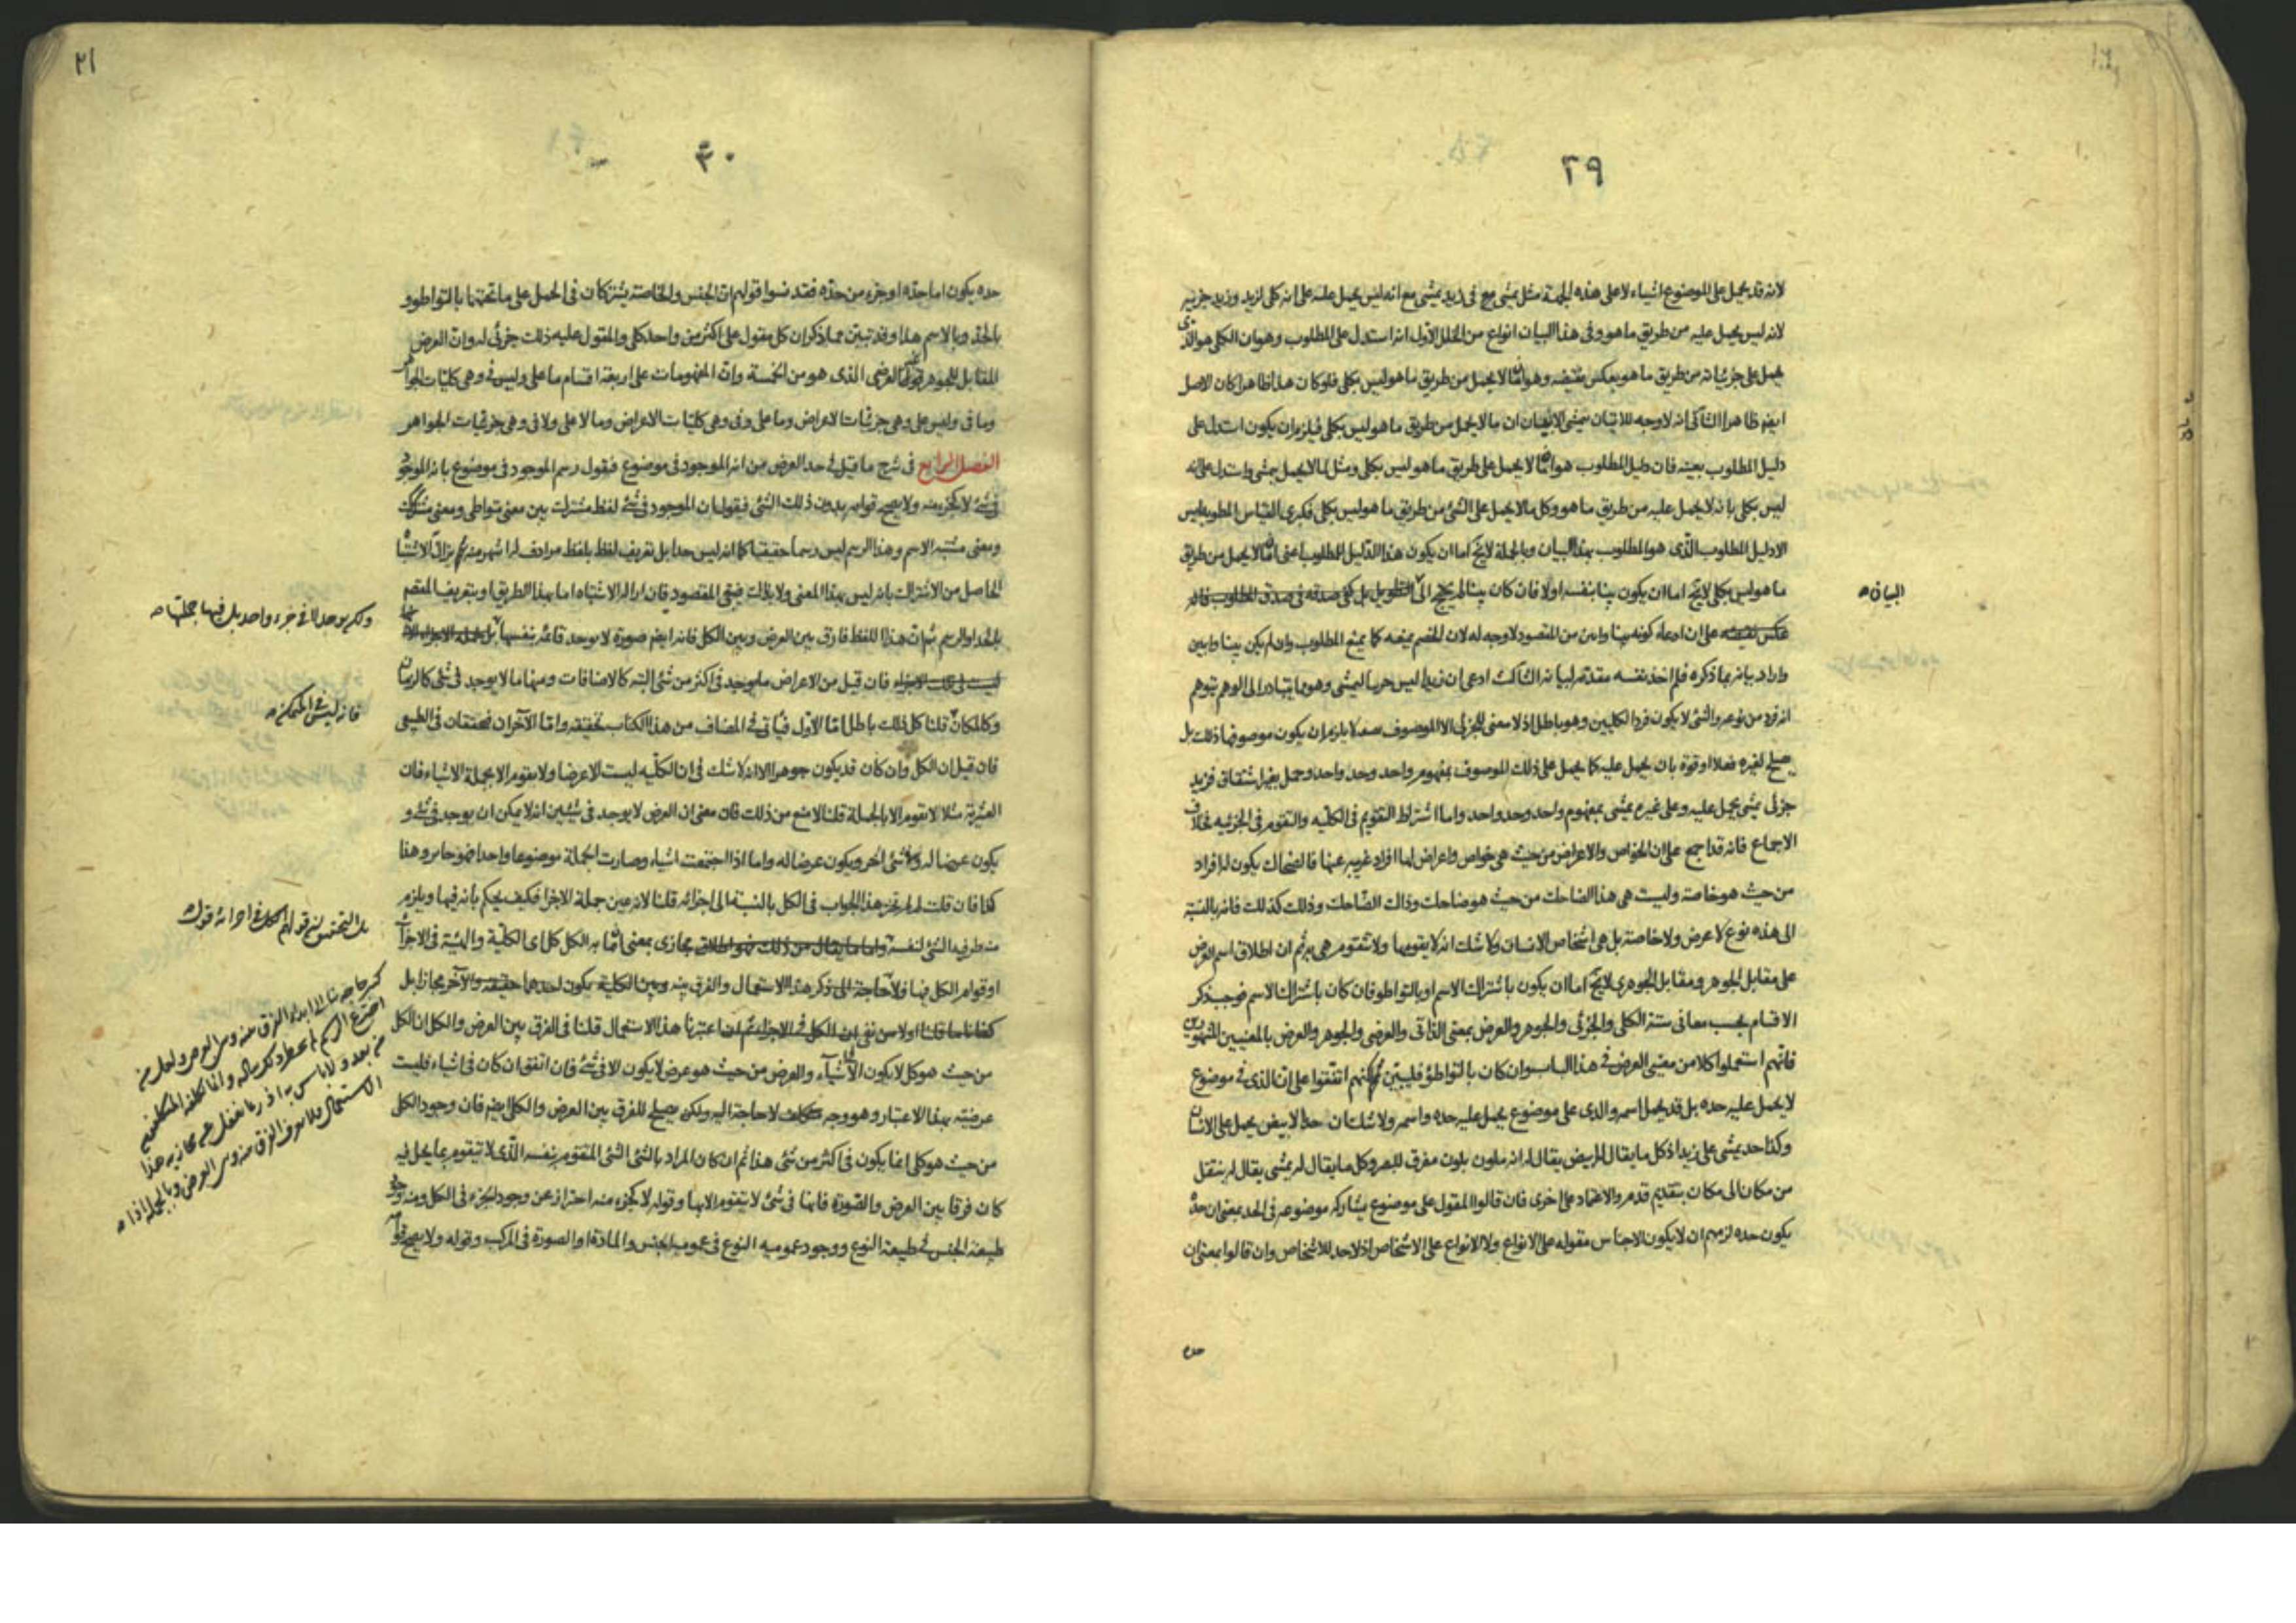 ٢٩
لانه قد يحمل على الموضوع اشياء لا على هذه الجهة مثل يمشي في زيد يمشي مع انه ليس يحمل عليه على انه كلي لزيد وزيد جزئيه
لانه ليس يحمل عليه من طريق ما هو وفي هذا البيان انواع من الخلل الاول انه استدل على المطلوب وهو ان الكلي هو الذى
يحمل على جزئياته من طريق ما هو بعكس نقيضه وهو ان ما لا يحمل من طريق ما هو ليس بكلي فلو كان هذا ظاهرا كان الاصل
ايضا ظاهرا الثاني انه لا وجه للاتيان بيمشي لاثبات ان ما لا يحمل من طريق ما هو ليس بكلي فيلزم ان يكون استدل على
دليل المطلوب بعينه فان دليل المطلوب هو ان ما لا يحمل على طريق ما هو ليس بكلي ومثل لما لا يحمل بيمشي واستدل على انه
ليس بكلي بانه لا يحمل عليه من طريق ما هو وكل ما لا يحمل على الشئ من طريق ما هو ليس بكلي فكبرى القياس المطوية ليس
الا دليل المطلوب الذى هو المطلوب بهذا البيان وبالجملة لا يخ اما ان يكون هذا الدليل المطلوب اعني ان ما لا يحمل من طريق
ما هو ليس بكلي لا يخ اما ان يكون بينا بنفسه او لا فان كان بينا لم يحتج الى التطويل بل كفى صدقه في صدق المطلوب فانه
البيان صه
عكس نقيضه على ان ادعاء كونه بينا وابين من المقصود لا وجه له لان للخصم يمنعه كما يمنع المطلوب وان لم يكن بينا وابين
واراد بيانه بما ذكره فلم اخذ نفسه مقدمة لبيانه الثالث ادعى ان زيدا ليس جزئيا ليمشي وهو ما يتبادر الى الوهم بتوهم
انه فرد من نوعه والشئ لا يكون فردا لكليين وهو باطل اذ لا معنى للجزئي الا الموصوف بصفة لا يلزم ان يكون موصوفها ذلك بل
يصلح لغيره فعلا او قوة بان يحمل عليه كما يحمل على ذلك الموصوف بمفهوم واحد وحد واحد وحمل بغير اشتقاق فزيد
جزئي يمشي يحمل عليه وعلى غيره يمشي بمفهوم واحد وحد واحد واما اشتراط التقويم في الكلية والتقوم في الجزئية بخلاف
الاجماع فانه قد اجمع على ان الخواص والاعراض من حيث هي خواص واعراض لها افراد غريبة عنها فالضحاك يكون له افراد
من حيث هو خاصة وليست هي هذا الضاحك من حيث هو ضاحك وذاك الضاحك وذلك كذلك فانه بالنسبة
الى هذه نوع لا عرض ولا خاصة بل هي اشخاص الانسان ولا شك انه لا يقومها ولا تتقوم هي به ثم ان اطلاق اسم العرض
على مقابل الجوهر ومقابل الجوهرى لا يخ اما ان يكون باشتراك الاسم او بالتواطو فان كان باشتراك الاسم فوجب ذكر
الاقسام بحسب معاني ستة الكلي والجزئي والجوهر والعرض بمعنى الذاتي والعرضي والجوهر والعرض بالمعنيين المشهورين
فانهم استعملوا كلا من معنيي العرض في هذا الباب وان كان بالتواطؤ فليبين ثم انهم اتفقوا على ان الذى في موضوع
لا يحمل عليه حده بل قد يحمل اسمه والذى على موضوع يحمل عليه حده واسمه ولا شك ان حد الابيض يحمل على الانسان
وكذا حد يمشي على زيد اذ كل ما يقال له ابيض يقال له انه ملون بلون مفرق للبصر وكل ما يقال له يمشي يقال له ينتقل
من مكان الى مكان بتقديم قدم والاعتماد على اخرى فان قالوا المقول على موضوع يشارك موضوعه في الحد بمعنى ان حده
يكون حده لزمهم ان لا يكون الاجناس مقوله على الانواع ولا الانواع على الاشخاص اذ لا حد للاشخاص وان قالوا بمعنى ان
حده
٢١
٣٠
حده يكون اما حده او جزء من حده فقد نسوا قولهم ان الجنس والخاصة يشتركان في الحمل على ما تحتهما بالتواطو و
بالحد وبالاسم هذا وقد تبين مما ذكر ان كل مقول على اكثر من واحد كلي والمقول عليه ذلك جزئي له وان العرض
المقابل للجوهر غير العرضي الذى هو من الخمسة وان المفهومات على اربعة اقسام ما على وليس في وهي كليات الجواهر
وما في وليس على وهي جزئيات الاعراض وما على وفي وهي كليات الاعراض وما لا على ولا في وهي جزئيات الجواهر
الفصل الرابع في شرح ما قيل في حد العرض من انه الموجود في موضوع فنقول رسم الموجود في موضوع بانه الموجود
في شئ لا كجزء منه ولا يصح قوامه بدون ذلك الشئ فيقول ان الموجود في شئ لفظ مشترك بين معنى متواطي ومعنى مشكك
ومعنى مشتبه الاسم وهذا الرسم ليس رسما حقيقيا كما انه ليس حدا بل تعريف لفظ بلفظ مرادف له اشهر منه ثم يزال الاشتباه
الحاصل من الاشتراك بانه ليس بهذا المعنى ولا بذلك فبقي المقصود فان ازالة الاشتباه اما بهذا الطريق او بتعريف المقصود
بالحد او الرسم ثم ان هذا اللفظ فارق بين العرض وبين الكل فانه ايضا صورة لا يوجد قائمة بنفسها بل جملة الاجزاء
ولكن يوجد لا في جزء واحد بل فيها جملتها صه
ليست في تلك الاجزاء فان قيل من الاعراض ما يوجد في اكثر من شئ البتة كالاضافات ومنها ما لا يوجد في شئ كالزمان
وكالمكان قلنا كل ذلك باطل اما الاول فيأتي في المضاف من هذا الكتاب تحقيقه واما الآخران فمحققان في الطبيعي
فانه ليس في المتمكن صه
فان قيل ان الكل وان كان قد يكون جوهرا الا انه لا شك في ان الكلية ليست الا عرضا ولا يقوم الا بجملة الاشياء فان
العشرية مثلا لا تقوم الا بالجملة قلنا لا منع من ذلك فان معنى ان العرض لا يوجد في شيئين انه لا يمكن ان يوجد في شئ و
يكون عرضا له وفي شئ آخر ويكون عرضا له واما اذا اجتمعت اشياء وصارت الجملة موضوعا واحدا فهو جائز وهذا
كذا فان قلت لم لم يجز هذا الجواب في الكل بالنسبة الى اجزائه قلنا لانه عين جملة الاجزا فكيف يحكم بانه فيها ويلزم
منه ظرفية الشئ لنفسه واما ما يقال من ذلك فهو اطلاق مجازى بمعنى ان ما به الكل كل اى الكلية والهيئة في الاجزاء
بل التحقيق ان قولهم الكل في اجزائه قول
او قوام الكل فيها فلا حاجة الى ذكر هذا الاستعمال والفرق بينه وبين الكلية يكون احدهما حقيقة والآخر مجازا بل
كفانا ما قلنا اولا من نفي ان الكل في الاجزاء ثم ان اعتبرنا هذا الاستعمال قلنا في الفرق بين العرض والكل ان الكل
من حيث هو كل لا يكون الا في اشياء والعرض من حيث هو عرض لا يكون الا في شئ فان اتفق ان كان في اشياء فليست
عرضيته بهذا الاعتبار وهو وجه لا حاجة اليه ولكن يصلح للفرق بين العرض والكلي ايضا فان وجود الكل
من حيث هو كلي انما يكون في اكثر من شئ هذا ثم ان كان المراد بالشئ الشئ المتقوم بنفسه الذى لا يتقوم بما يحل فيه
كان فرقا بين العرض والصورة فانها في شئ لا يتقوم الا بها وقوله لا كجزء منه احتراز عن وجود الجزء في الكل ومنه وجود
طبيعة الجنس في طبيعة النوع ووجود عمومية النوع في عمومية الجنس والمادة او الصورة في المركب وقوله ولا يصح قوامه